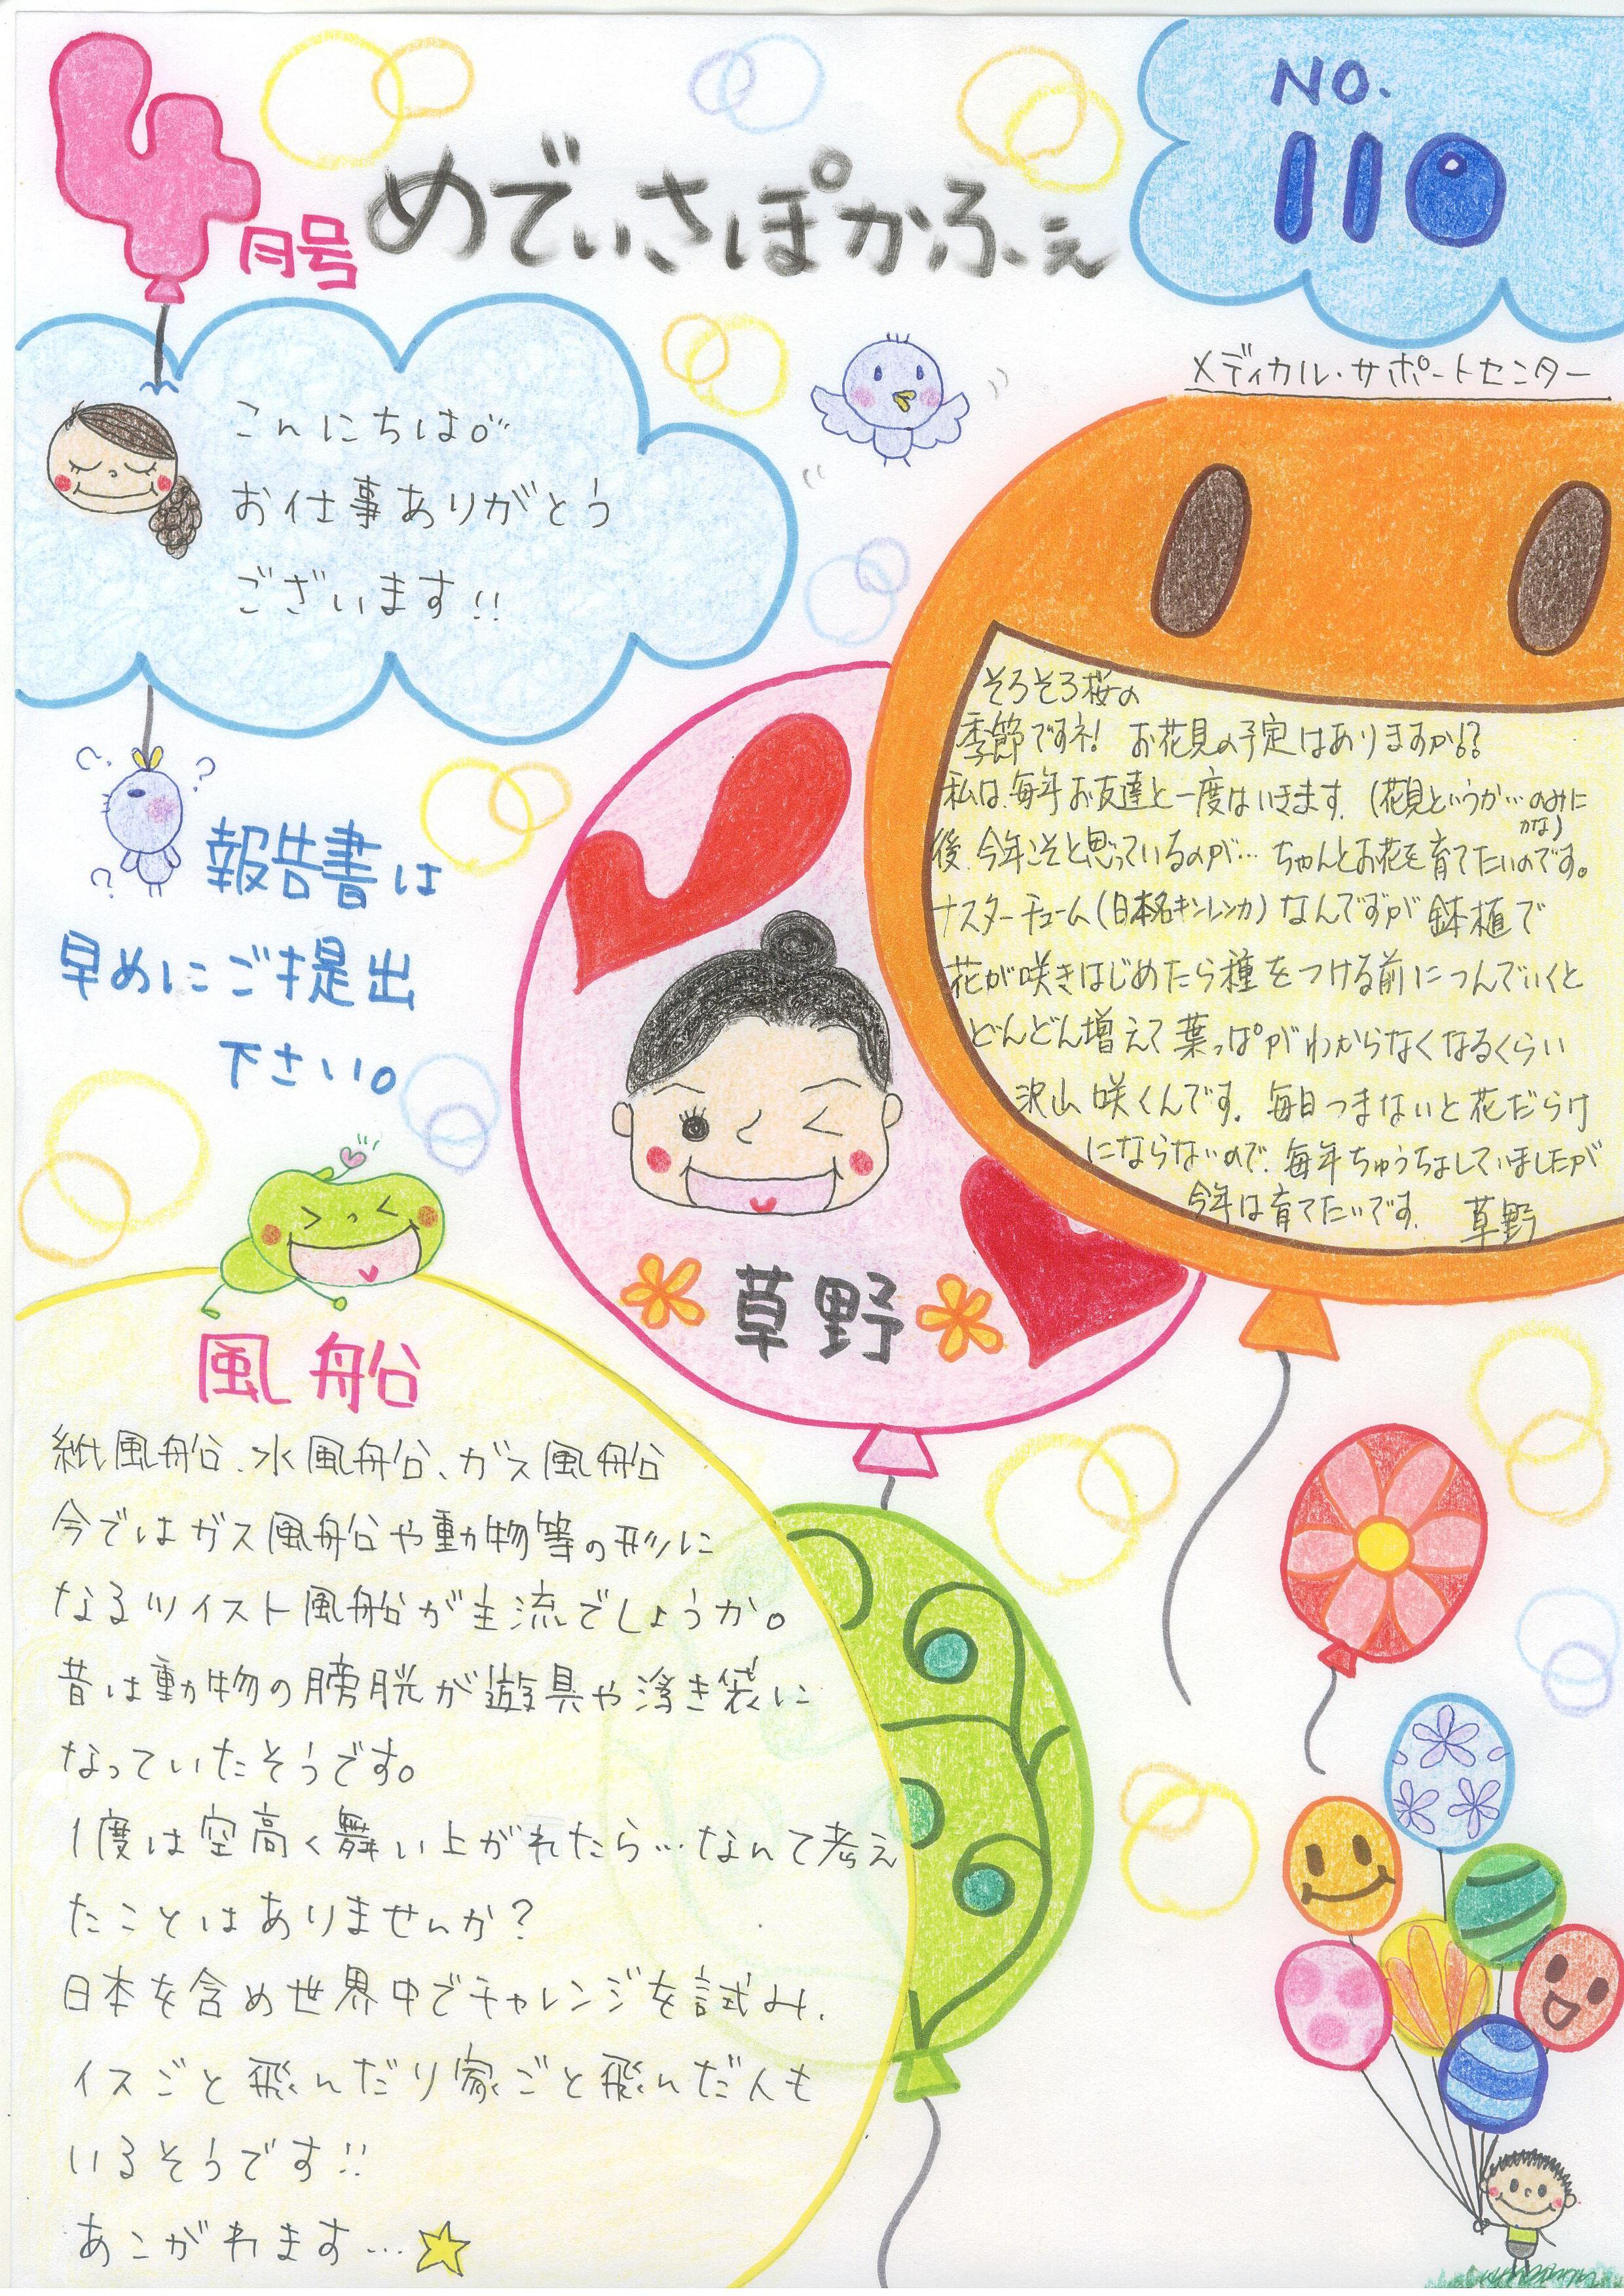 4月号
めでぃさぽかふぇ
NO.
110
メディカル・サポートセンター
こんにちは。
お仕事ありがとう
ございます!!
そろそろ桜の
季節ですネ! お花見の予定はありますか!?
私は、毎年お友達と一度はいきます。(花見というか…のみに
かな)
後、今年こそと思っているのが… ちゃんとお花を育てたいのです。
ナスターチューム(日本名キンレンカ)なんですが 鉢植で
花が咲きはじめたら種をつける前につんでいくと
どんどん増えて葉っぱがわからなくなるくらい
沢山咲くんです。毎日つまないと花だらけ
にならないので、毎年ちゅうちょしていましたが
今年は育てたいです。 草野
報告書は
早めにご提出
下さい。
草野
風船
紙風船、水風船、ガス風船
今ではガス風船や動物等の形に
なるツイスト風船が主流でしょうか。
昔は動物の膀胱が遊具や浮き袋に
なっていたそうです。
1度は空高く舞い上がれたら…なんて考え
たことはありませんか?
日本を含め世界中でチャレンジを試み、
イスごと飛んだり家ごと飛んだ人も
いるそうです!!
あこがれます…